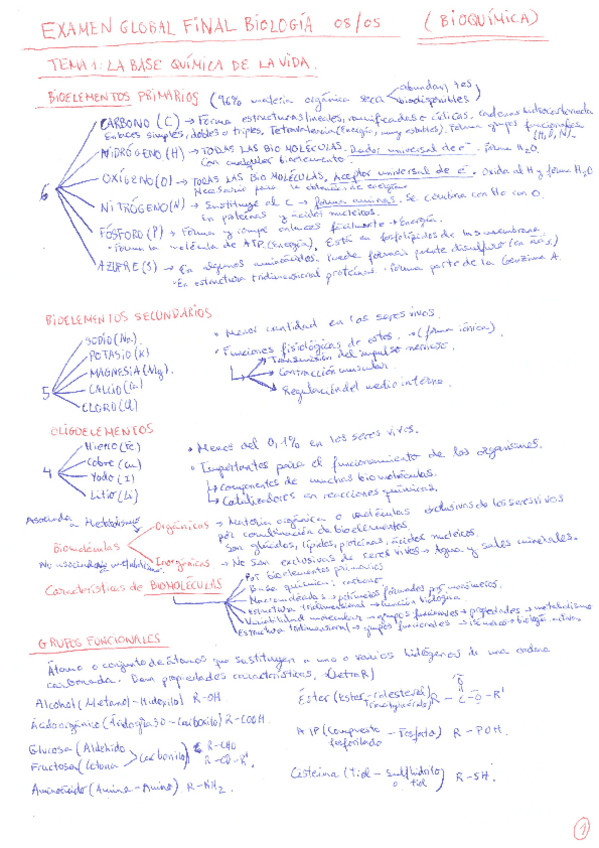 EXAMEN GLOBAL FINAL BIOLOGÍA 08/05 (BIOQUÍMICA)
TEMA 1: LA BASE QUÍMICA DE LA VIDA.
BIOELEMENTOS PRIMARIOS (96% materia orgánica seca abundantes) biodisponibles)
6
CARBONO (C) → Forma estructuras lineales, ramificadas o cíclicas, cadena hidrocarbonada
Enlaces simples, dobles o triples, Tetravalencia (energía, muy estables). Forma grupos funcionales (H, O, N).
HIDRÓGENO (H) → TODAS LAS BIOMOLÉCULAS. Dador universal de e-. Forma H2O.
Con cualquier bioelemento.
OXÍGENO (O) → TODAS LAS BIOMOLÉCULAS, Aceptor universal de e-. Oxida al H y forma H2O
Necesario para la obtención de energía
NITRÓGENO (N) → Sustituye al C → forma aminas. Se combina con H o con O.
En proteínas y ácidos nucleicos.
FÓSFORO (P) → Forma y rompe enlaces fácilmente → Energía.
• Forma la molécula de ATP (energía), Está en fosfolípidos de las membranas.
AZUFRE (S) → En algunos aminoácidos. Puede formar puente disulfuro
• En estructura tridimensional proteínas. • Forma parte de la Coenzima A.
BIOELEMENTOS SECUNDARIOS
5
SODIO (Na).
POTASIO (K)
MAGNESIA (Mg).
CALCIO (Ca).
CLORO (Cl)
• Menor cantidad en los seres vivos.
• Funciones fisiológicas de estos. → (forma iónica)
Transmisión del impulso nervioso
Contracción muscular
Regulación del medio interno.
OLIGOELEMENTOS
4
Hierro (Fe)
Cobre (Cu)
Yodo (I)
Litio (Li)
• Menos del 0,1% en los seres vivos.
• Importantes para el funcionamiento de los organismos.
↳ Componentes de muchas biomoléculas.
↳ Catalizadores en reacciones químicas.
Asociada a Metabolismo
Biomoléculas
No asociadas metabolismo
Orgánicos → Materia orgánica o moléculas exclusivas de los seres vivos
por combinación de bioelementos.
Son glúcidos, lípidos, proteínas, ácidos nucleicos.
Inorgánicos → No son exclusivas de seres vivos → Agua y sales minerales.
Características de BIOMOLÉCULAS
Por bioelementos primarios
Base química: carbono
Macromoléculas → polímeros formados por monómeros.
Estructura tridimensional → función biológica.
Variabilidad molecular → grupos funcionales → propiedades → metabolismo
Estructura tridimensional → grupos funcionales →
GRUPOS FUNCIONALES
Átomo o conjunto de átomos que sustituyen a uno o varios hidrógenos de una cadena
carbonada. Dan propiedades características, (Letra R)
Alcohol (Metano - Hidroxilo) R-OH.
Ácido orgánico (Ácido graso - Carboxilo) R-COOH.
Glucosa (Aldehído
Fructosa (Cetona
Carbonilo) R-CHO
R-CO-R'
Aminoácido (Amina - Amino) R-NH2.
Éster (Ester - colesterol) R-C-O-R'
Triacilglicéridos
O
ATP (Compuesto - Fosfato) R-POH.
fosforilado
Cisteína (Tiol - Sulfhidrilo) R-SH.
o tiol
1